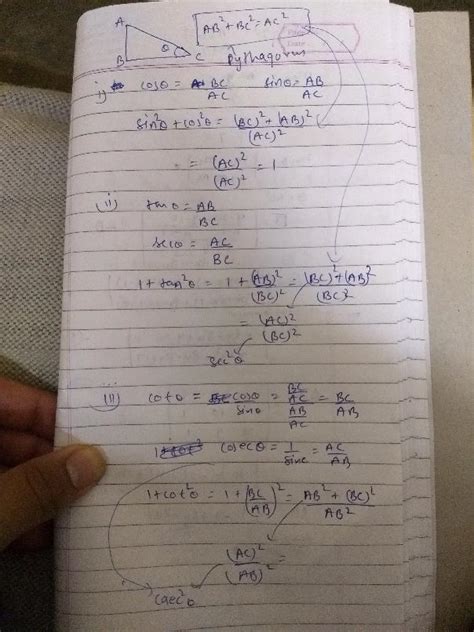 A
B
C
θ
AB² + BC² = AC²
Pythagorus
i) cosθ = BC/AC    sinθ = AB/AC
sin²θ + cos²θ = (BC)² + (AB)² / (AC)²
= (AC)² / (AC)² = 1
(ii) tanθ = AB/BC
secθ = AC/BC
1 + tan²θ = 1 + (AB)²/(BC)² = (BC)² + (AB)² / (BC)²
= (AC)² / (BC)²
sec²θ
(iii) cotθ = cosθ/sinθ = BC/AC / AB/AC = BC/AB
cosecθ = 1/sinc = AC/AB
1 + cot²θ = 1 + (BC/AB)² = AB² + (BC)² / AB²
(AC)² / (AB)² =
cosec²θ